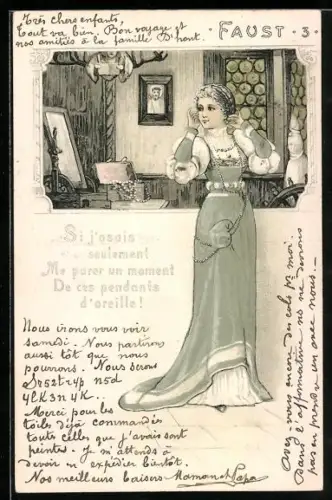 Très chers enfants,
Tout va bien. Bon voyage et
nos amitiés à la famille D'hont.
FAUST · 3 ·
Si j'osais
seulement
Me parer un moment
De ces pendants
d'oreille!
Nous irons vous voir
samedi. Nous partirons
aussi tôt que nous
pourrons. Nous serons
5r52t24p n5d
4lk3n4k..
Merci pour les
toiles déjà commandées
toutes celles que j'avais sont
peintes. Je m'attends à
devoir m'expédier bientôt.
Nos meilleurs baisers Maman et Papa
Avez-vous encore des cols pr moi.
Dans l'affirmative ns ne devrons
pas en prendre en avec nous.-